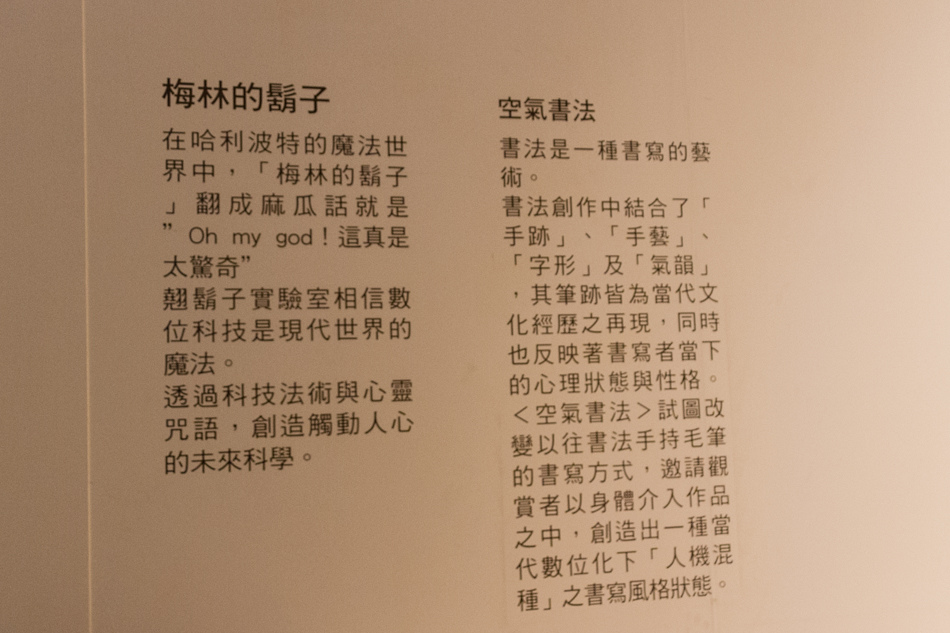 梅林的鬍子
在哈利波特的魔法世
界中，「梅林的鬍子
」翻成麻瓜話就是
”Oh my god！這真是
太驚奇”
翹鬍子實驗室相信數
位科技是現代世界的
魔法。
透過科技法術與心靈
咒語，創造觸動人心
的未來科學。
空氣書法
書法是一種書寫的藝
術。
書法創作中結合了「
手跡」、「手藝」、
「字形」及「氣韻」
，其筆跡皆為當代文
化經歷之再現，同時
也反映著書寫者當下
的心理狀態與性格。
＜空氣書法＞試圖改
變以往書法手持毛筆
的書寫方式，邀請觀
賞者以身體介入作品
之中，創造出一種當
代數位化下「人機混
種」之書寫風格狀態。